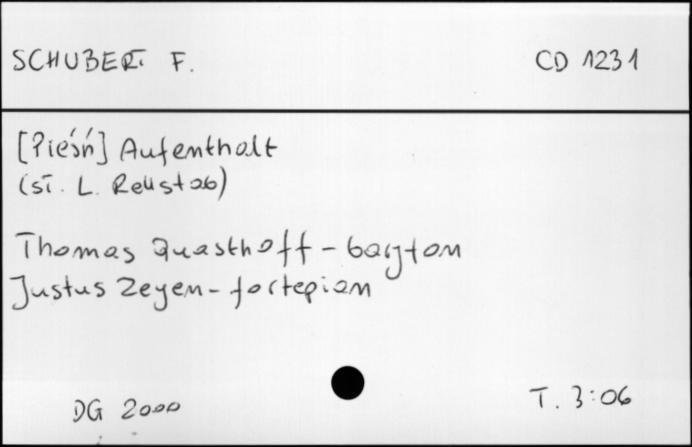 SCHUBERT F.
CD 1231
[Pieśń] Aufenthalt
(sł. L. Rellstab)
Thomas Quasthoff - baryton
Justus Zeyen - fortepian
DG 2000
T. 3:06